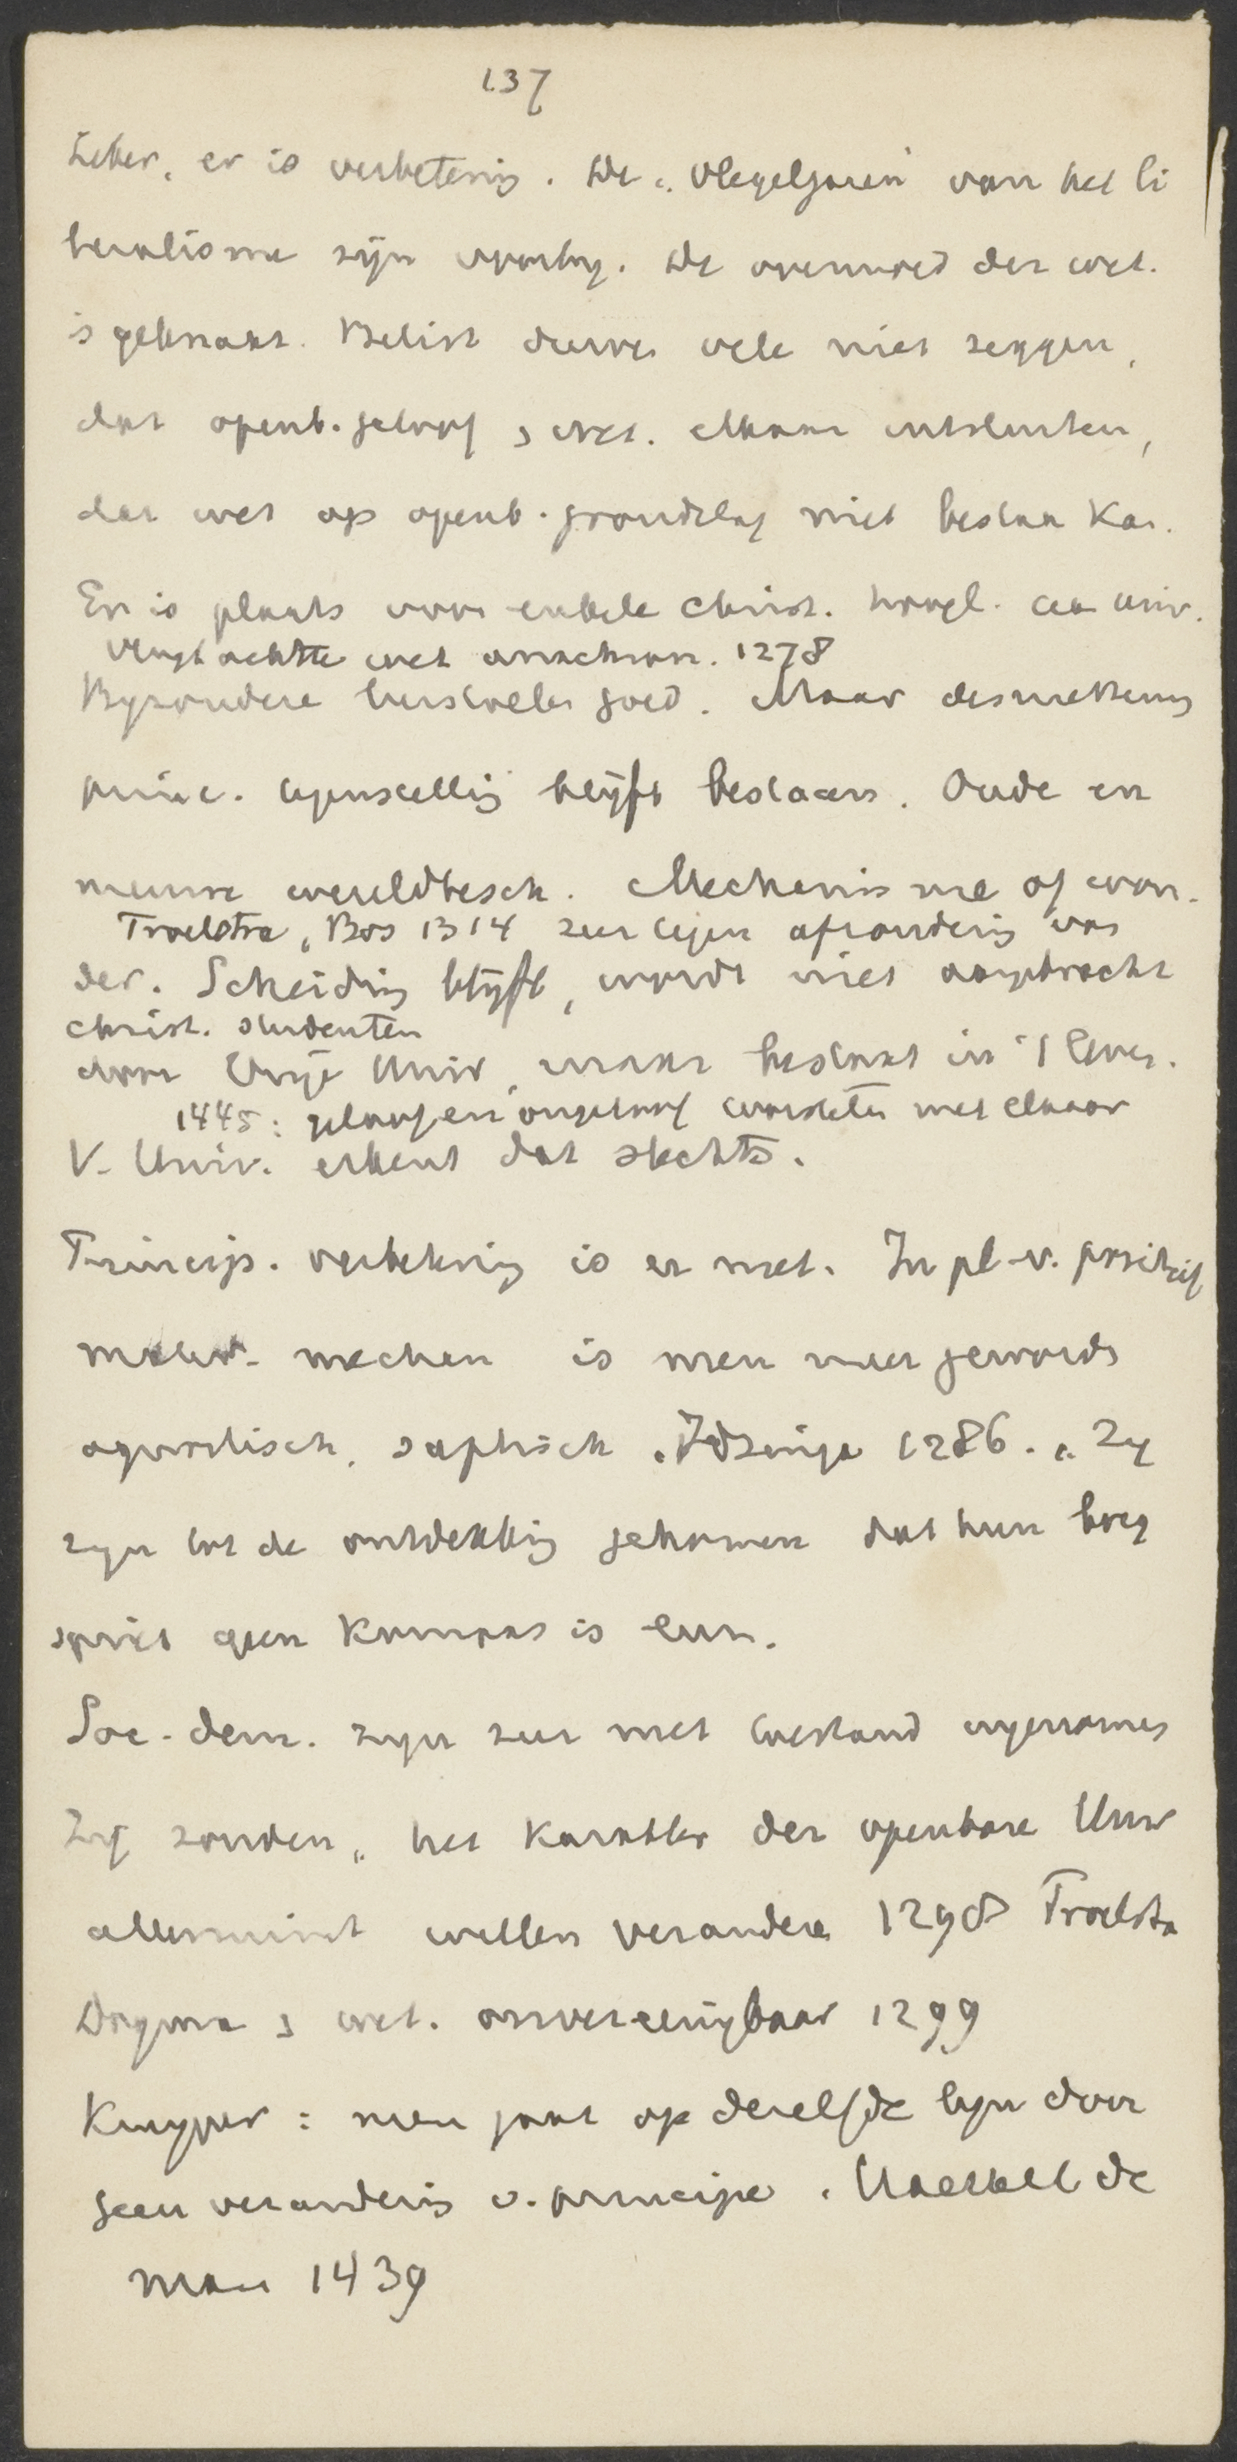 137
Zeker, er is verbetering. De „vlegeljaren" van het li
beralisme zijn voorby. De overmoed der wet.
is geknakt. Beslist durven vele niet zeggen,
dat openb. geloof & wet. elkaar uitsluiten,
dat wet op openb. grondslag niet bestaan kan.
Er is plaats voor enkele christ. hoogl. aan univ.
Vlugt achtte wet anachron. 1278
Byzondere leerstoelen goed. Maar desniettemin
princ. tegenstelling blijft bestaan. Oude en
nieuwe wereldbesch. Mechanisme of won-
Troelstra, Bos 1314 zeer tegen afzondering van
der. Scheiding blijft, wordt niet aangebracht
christ. studenten
door Vrije Univ, maar bestaat in 't leven.
1445: geloof en ongeloof worstelen met elkaar
V. Univ. erkent dat slechts.
Princip. verbetering is er niet. In pl. v. positief
mater. mechan is men meer geworden
agnostisch, sceptisch. Idzinga 1286. „Zy
zyn tot de ontdekking gekomen dat hun boeg
spriet geen kompas is
Soc. dem. zyn zeer met toestand ingenomen
Zij zouden „het karakter der openbare Univ
allerminst willen veranderen 1298 Troelstra
Dogma & wet. onvereenigbaar 1299
Kuyper: men gaat op dezelfde lyn door
geen verandering v. principe.
man 1439